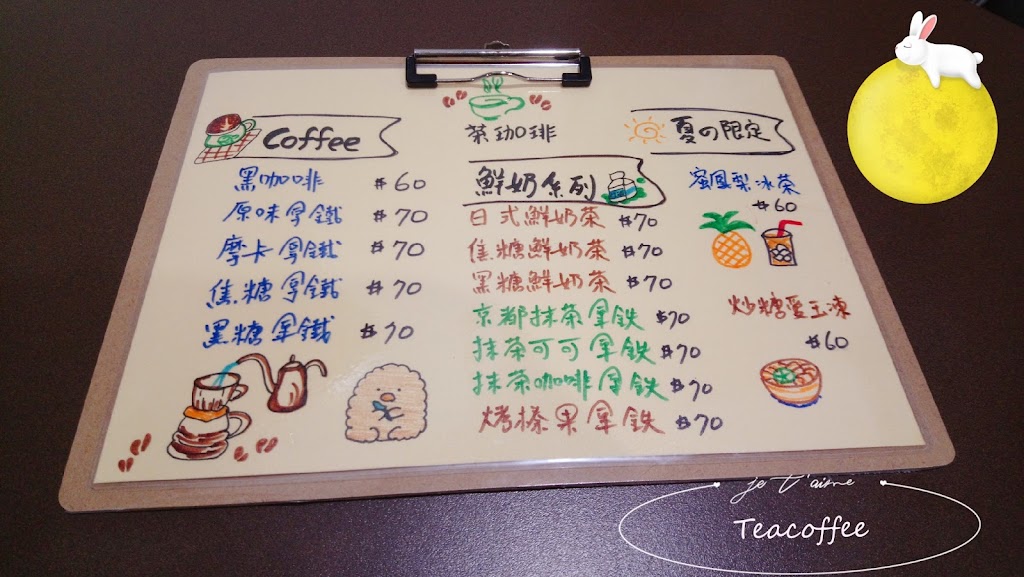 茶珈琲
Coffee
黑咖啡 $60
原味拿鐵 $70
摩卡拿鐵 $70
焦糖拿鐵 $70
黑糖拿鐵 $70
鮮奶系列
日式鮮奶茶 $70
焦糖鮮奶茶 $70
黑糖鮮奶茶 $70
京都抹茶拿铁 $70
抹茶可可拿铁 $70
抹茶咖啡拿铁 $70
烤榛果拿铁 $70
夏の限定
蜜鳳梨冰茶
$60
炒糖愛玉凍
$60
Je t'aime
Teacoffee